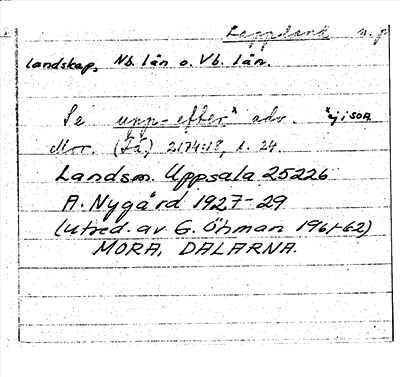 Lappland n. pr
landskap, Nb. län o. Vb. län.
Se upp-efter* adv. *jisoa
Mor. (Få) 2174:18, s. 24.
Landsm. Uppsala 25226
A. Nygård 1927-29
(utred. av G. Öhman 1961-62)
MORA, DALARNA.